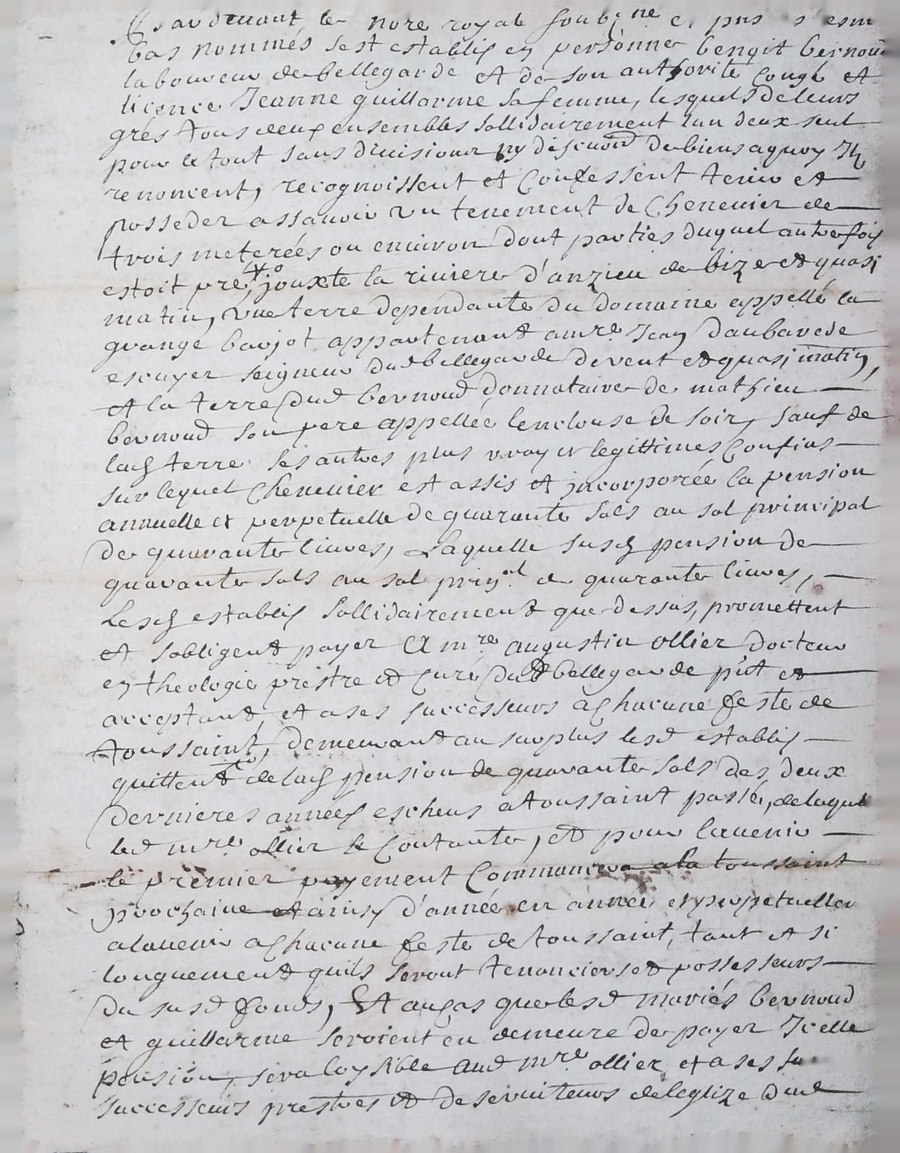 Pardevant le nore royal soubzne et pnts tesm
bas nommés sest establis en personne benoit bernoud
laboureur de bellegarde et de son authorité congé et
licence Jeanne guillarme sa femme, lesquels de leurs
grés tous deux ensembles sollidairement lun deux seul
pour le tout sans division ny de biens aquoy Ils
renoncent, recognoissent et confessent tenir et
posseder assavoir un tenement de Chenevier de
trois meterées ou environ dont parties duquel autrefois
estoit pré, jouxte la riviere d'anzieu de bize et quasi
matin, une terre dependante du domaine appellé la
grange barjot appartenant a mre Jean daubarede
escuyer seigneur dud bellegarde de vent et quasi matin,
et la terre dud bernoud donnataire de mathieu
bernoud son pere appellée lenclouse de soir, sauf de
lad terre ses autres plus vrays et legittimes Confins
sur lequel Chenevier est assis et incorporée la pension
annuelle et perpetuelle de quarante sols au sol principal
de quarante livres, Laquelle susd pension de
quarante sols au sol prinal de quarante livres,
Lesd establis sollidairement que dessus, promettent
et sobligent payer a mre augustin ollier docteur
en theologie prestre et curé dud bellegarde pnt et
acceptant, et a ses successeurs a Chacune feste de
toussaint, demeurant au surplus lesd establis
quittent de lad pension de quarante sols des deux
dernieres années escheus a toussaint passé, de laquel
led mre ollier se Contante, et pour lavenir
le premier payement Commancera a la toussaint
prochaine et ainsy d'année en année et perpetuelle
a lavenir a Chacune feste de toussaint, tant et si
longuement quils seront tenanciers et possesseurs
du susd fonds, Et au cas que lesd mariés bernoud
et guillarme seroient en demeure de payer Icelle
pension, sera loysible aud mre ollier et a ses su
successeurs prestres et deserviteurs de leglize dud